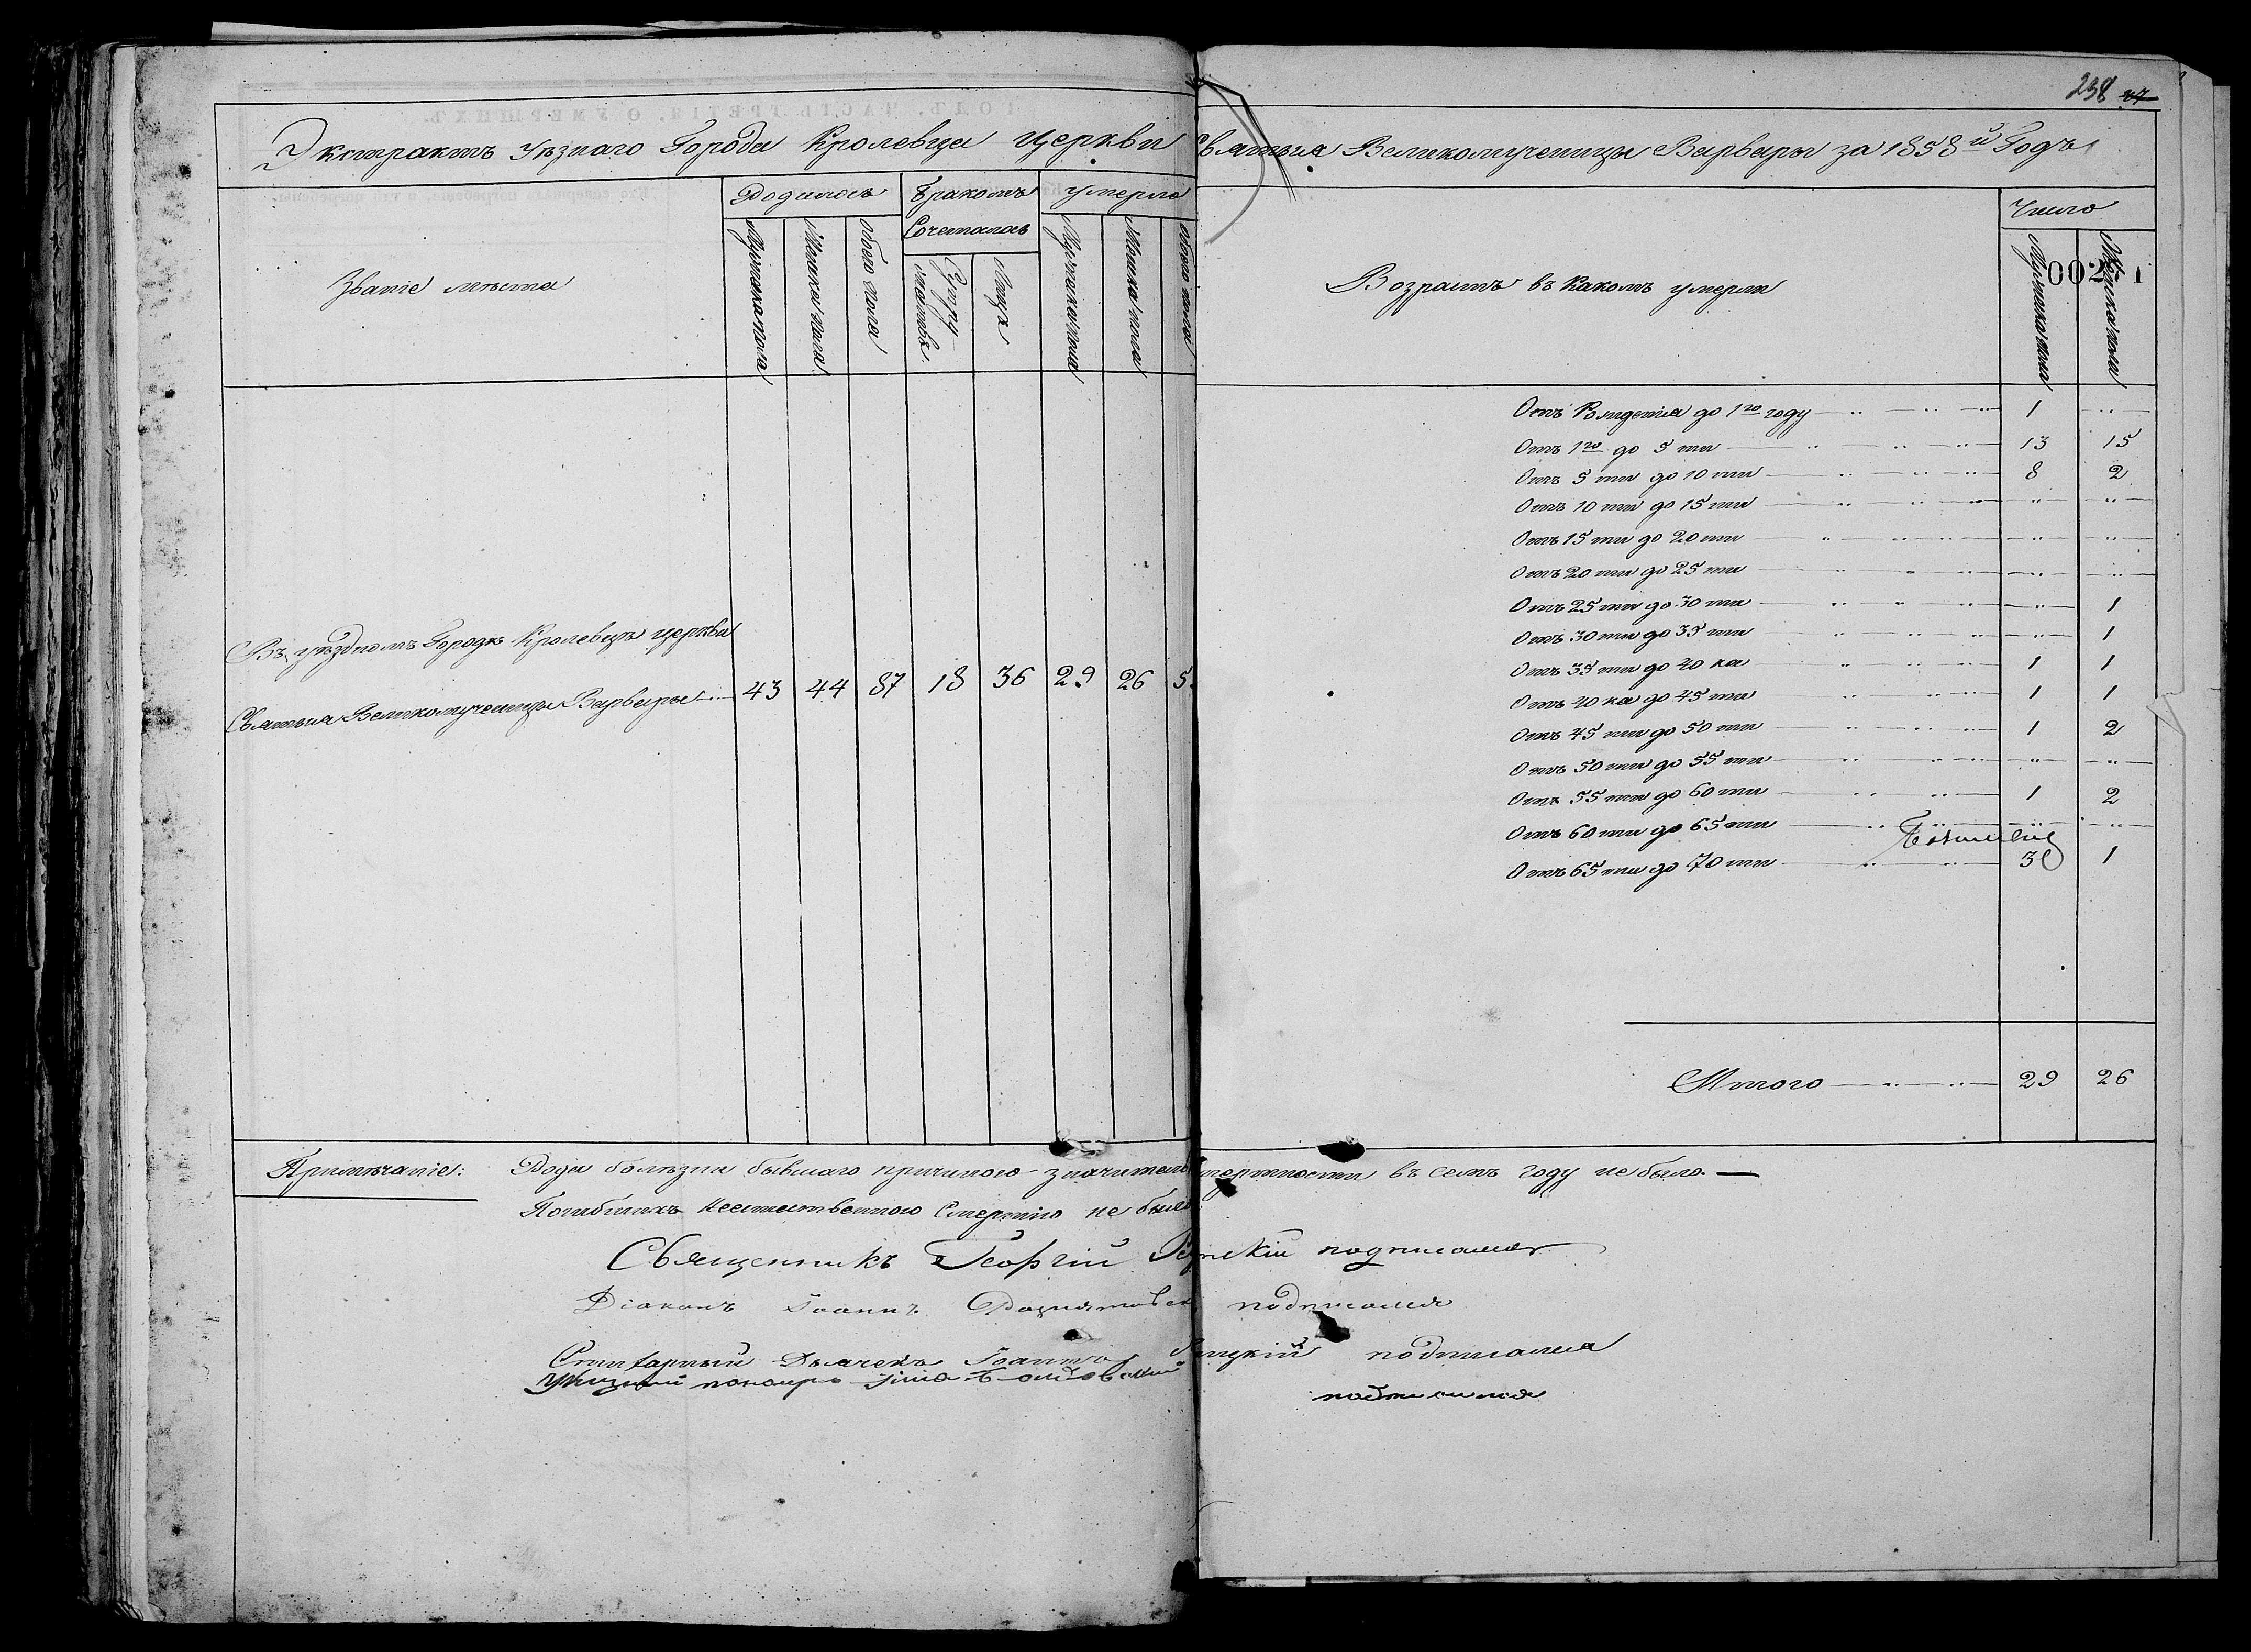 238 27
Экстрактъ Уѣзнаго Города Кролевца Церкви Святыя Великомученицы Варвары за 1858й Годъ
Званіе мѣста
Родилось
Мужеска пола
Женска пола
Обоего пола
Бракомъ Сочеталось
Супружествъ
Лицъ
Умерло
Мужеска пола
Женска пола
Обоего пола
Возрастъ въ какомъ умерли
Число
Мужеска пола
Женска пола
Въ уѣздномъ Городѣ Кролевцѣ церкви
Святыя Великомученицы Варвары 43 44 87 18 36 29 26 5
Отъ Рожденія до 1го году 1 "
Отъ 1го до 5 ти 13 15
Отъ 5 ти до 10 ти 8 2
Отъ 10 ти до 15 ти " "
Отъ 15 ти до 20 ти " "
Отъ 20 ти до 25 ти " "
Отъ 25 ти до 30 ти " 1
Отъ 30 ти до 35 ти " 1
Отъ 35 ти до 40 ка 1 1
Отъ 40 ка до 45 ти 1 1
Отъ 45 ти до 50 ти 1 2
Отъ 50 ти до 55 ти " "
Отъ 55 ти до 60 ти 1 2
Отъ 60 ти до 65 ти " "
Отъ 65 ти до 70 ти 3 1
Итого 29 26
Примѣчаніе: Рода болѣзни бывшаго причиною значитель смертности въ семъ году не было.
Погибшихъ неестественною Смертію не было
Священникъ Георгій подписался
Діаконъ Іоаннъ подписался
Дьячекъ Іоаннъ подписался
пономарь подписался